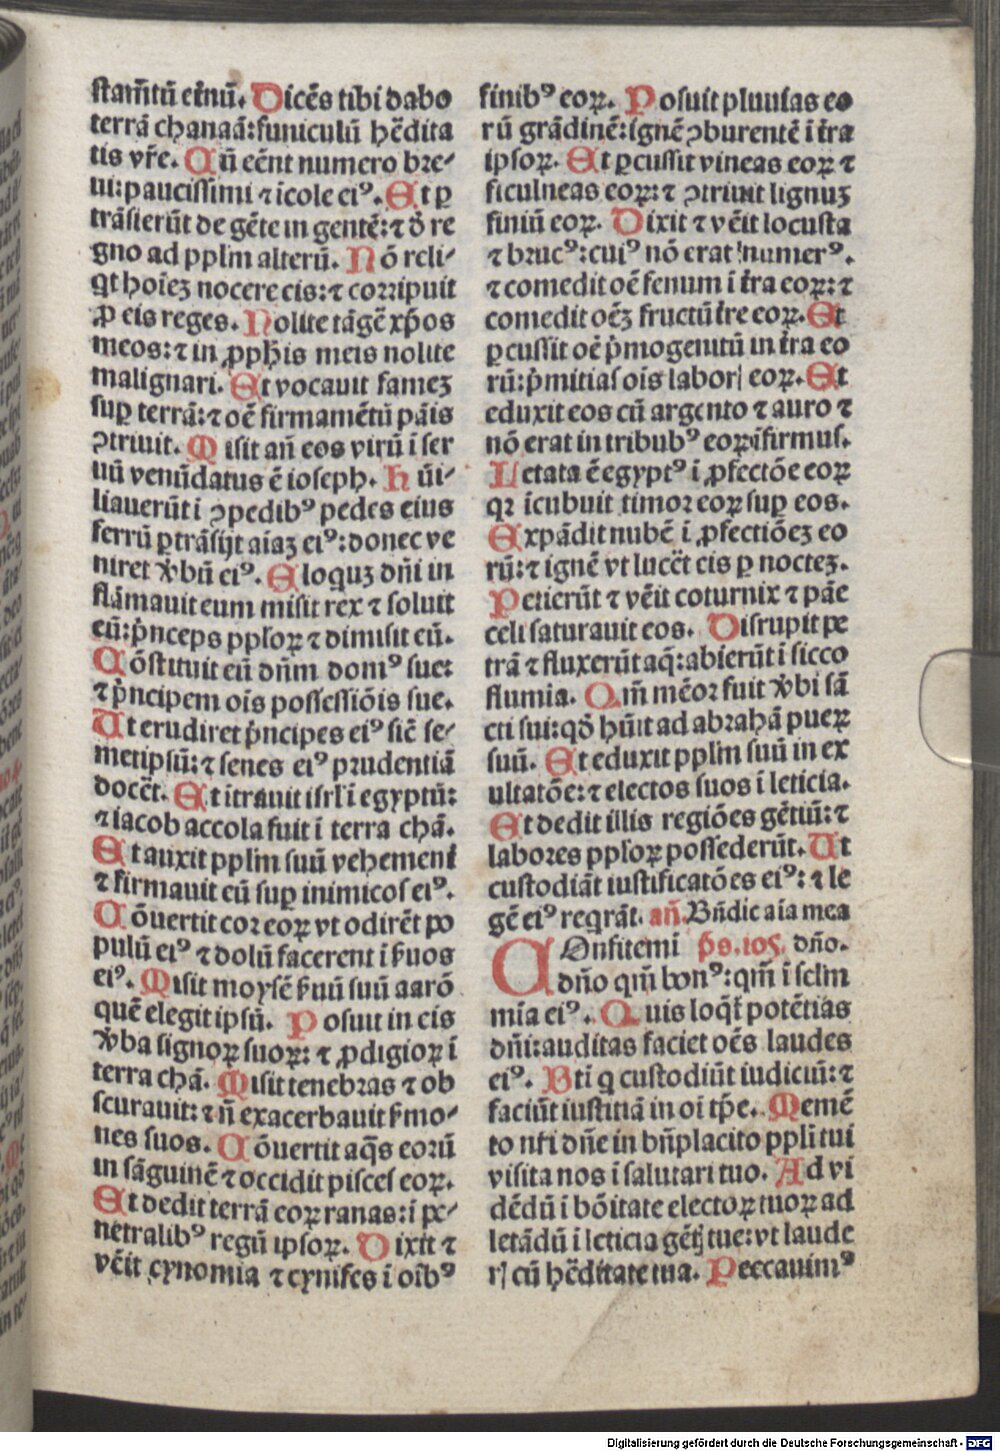 stam̄tū et̄nū. Dicēs tibi dabo
terrā chanaā: funiculū hēdita
tis vr̄e. Cū eēnt numero bre⸗
ui: paucissimi ⁊ icole eiꝰ. Et ꝑ
trāsierūt de gēte in gentē: ⁊ ð re
gno ad pplm alterū. Nō reli⸗
qt hoīeꝫ nocere eis: ⁊ corripuit
ꝓ eis reges. Nolite tāgē xp̄os
meos: ⁊ in ꝓphīs meis nolite
malignari. Et vocauit fameꝫ
suꝑ terrā: ⁊ oē firmamētū pāis
ꝯtriuit. Misit an̄ eos virū i ser
uū venūdatus ē ioseph. Hūi⸗
liauerūt i ꝯpedibꝰ pedes eius
ferrū ꝑtrāsijt aiaꝫ eiꝰ: donec ve
niret v̓bū eiꝰ. Eloquꝫ dn̄i in
flāmauit eum misit rex ⁊ soluit
eū: p̄nceps pploꝝ ⁊ dimisit eū.
Cōstituit eū dn̄m domꝰ sue:
⁊ p̄ncipem ois possessiōis sue.
Ut erudiret p̄ncipes eiꝰ sic̄ se⸗
metipsū: ⁊ senes eiꝰ prudentiā
docēt. Et ītrauit isrl i egyptū:
⁊ iacob accola fuit i terra chā.
Et auxit pplm suū vehement̄
⁊ firmauit eū suꝑ inimicos eiꝰ.
Cōuertit cor eoꝝ vt odirēt po
pulū eiꝰ ⁊ dolū facerent i s̄uos
eiꝰ. Misit moysē s̄uū suū aarō
quē elegit ipsū. Posuit in eis
v̓ba signoꝝ suoꝝ: ⁊ ꝓdigioꝝ ī
terra chā. Misit tenebras ⁊ ob
scurauit: ⁊ n̄ exacerbauit s̄mo⸗
nes suos. Cōuertit aq̄s eorū
in sāguinē ⁊ occidit pisces eoꝝ.
Et dedit terrā eoꝝ ranas: i pe⸗
netralibꝰ regū ipsoꝝ. Dixit ⁊
vēit cynomia ⁊ cynifes i oībꝰ
finibꝰ eoꝝ. Posuit pluuias eo
rū grādinē: ignē ꝯburentē i t̄ra
ipsoꝝ. Et ꝑcussit vineas eoꝝ ⁊
ficulneas eoꝝ: ⁊ ꝯtriuit lignuꝫ
finiū eoꝝ. Dixit ⁊ vēit locusta
⁊ brucꝰ: cuiꝰ nō erat numerꝰ.
⁊ comedit oē fenum i t̄ra eoꝝ: ⁊
comedit oēꝫ fructū t̄re eoꝝ. Et
ꝑcussit oē p̄mogenitū in t̄ra eo
rū: p̄mitias ois laborꝭ eoꝝ. Et
eduxit eos cū argento ⁊ auro ⁊
nō erat in tribubꝰ eoꝝ īfirmus.
Letata ē egyptꝰ i ꝓfectōe eoꝝ
qꝛ īcubuit timor eoꝝ suꝑ eos.
Expādit nubē i ꝓfectiōeꝫ eo
rū: ⁊ ignē vt lucēt eis ꝑ nocteꝫ.
Petierūt ⁊ vēit coturnix ⁊ pāe
celi saturauit eos. Disrupit pe
trā ⁊ fluxerūt aq̄: abierūt i sicco
flumia. Qm̄ mēor fuit v̓bi sā
cti sui: qð hūit ad abrahā pueꝝ
suū. Et eduxit pplm suū in ex
ultatōe: ⁊ electos suos i leticia.
Et dedit illis regiōes gētiū: ⁊
labores pploꝝ possederūt. Ut
custodiāt iustificatōes eiꝰ: ⁊ le
gē eiꝰ reqrāt. an̄. Bn̄dic aia mea
COnfitemi p̄s. 105. dn̄o.
dn̄o qm̄ bonꝰ: qm̄ i sclm
mīa eiꝰ. Quis loqt̄ potētias
dn̄i: auditas faciet oēs laudes
eiꝰ. Bti q custodiūt iudiciū: ⁊
faciūt iustitiā in oi tp̄e. Memē
to nr̄i dn̄e in bn̄placito ppli tui
visita nos i salutari tuo. Ad vi
dēdū i bōitate electoꝝ tuoꝝ ad
letādū i leticia gētꝭ tue: vt laude
rꝭ cū hēditate tua. Peccauimꝰ
Digitalisierung gefördert durch die Deutsche Forschungsgemeinschaft - DFG